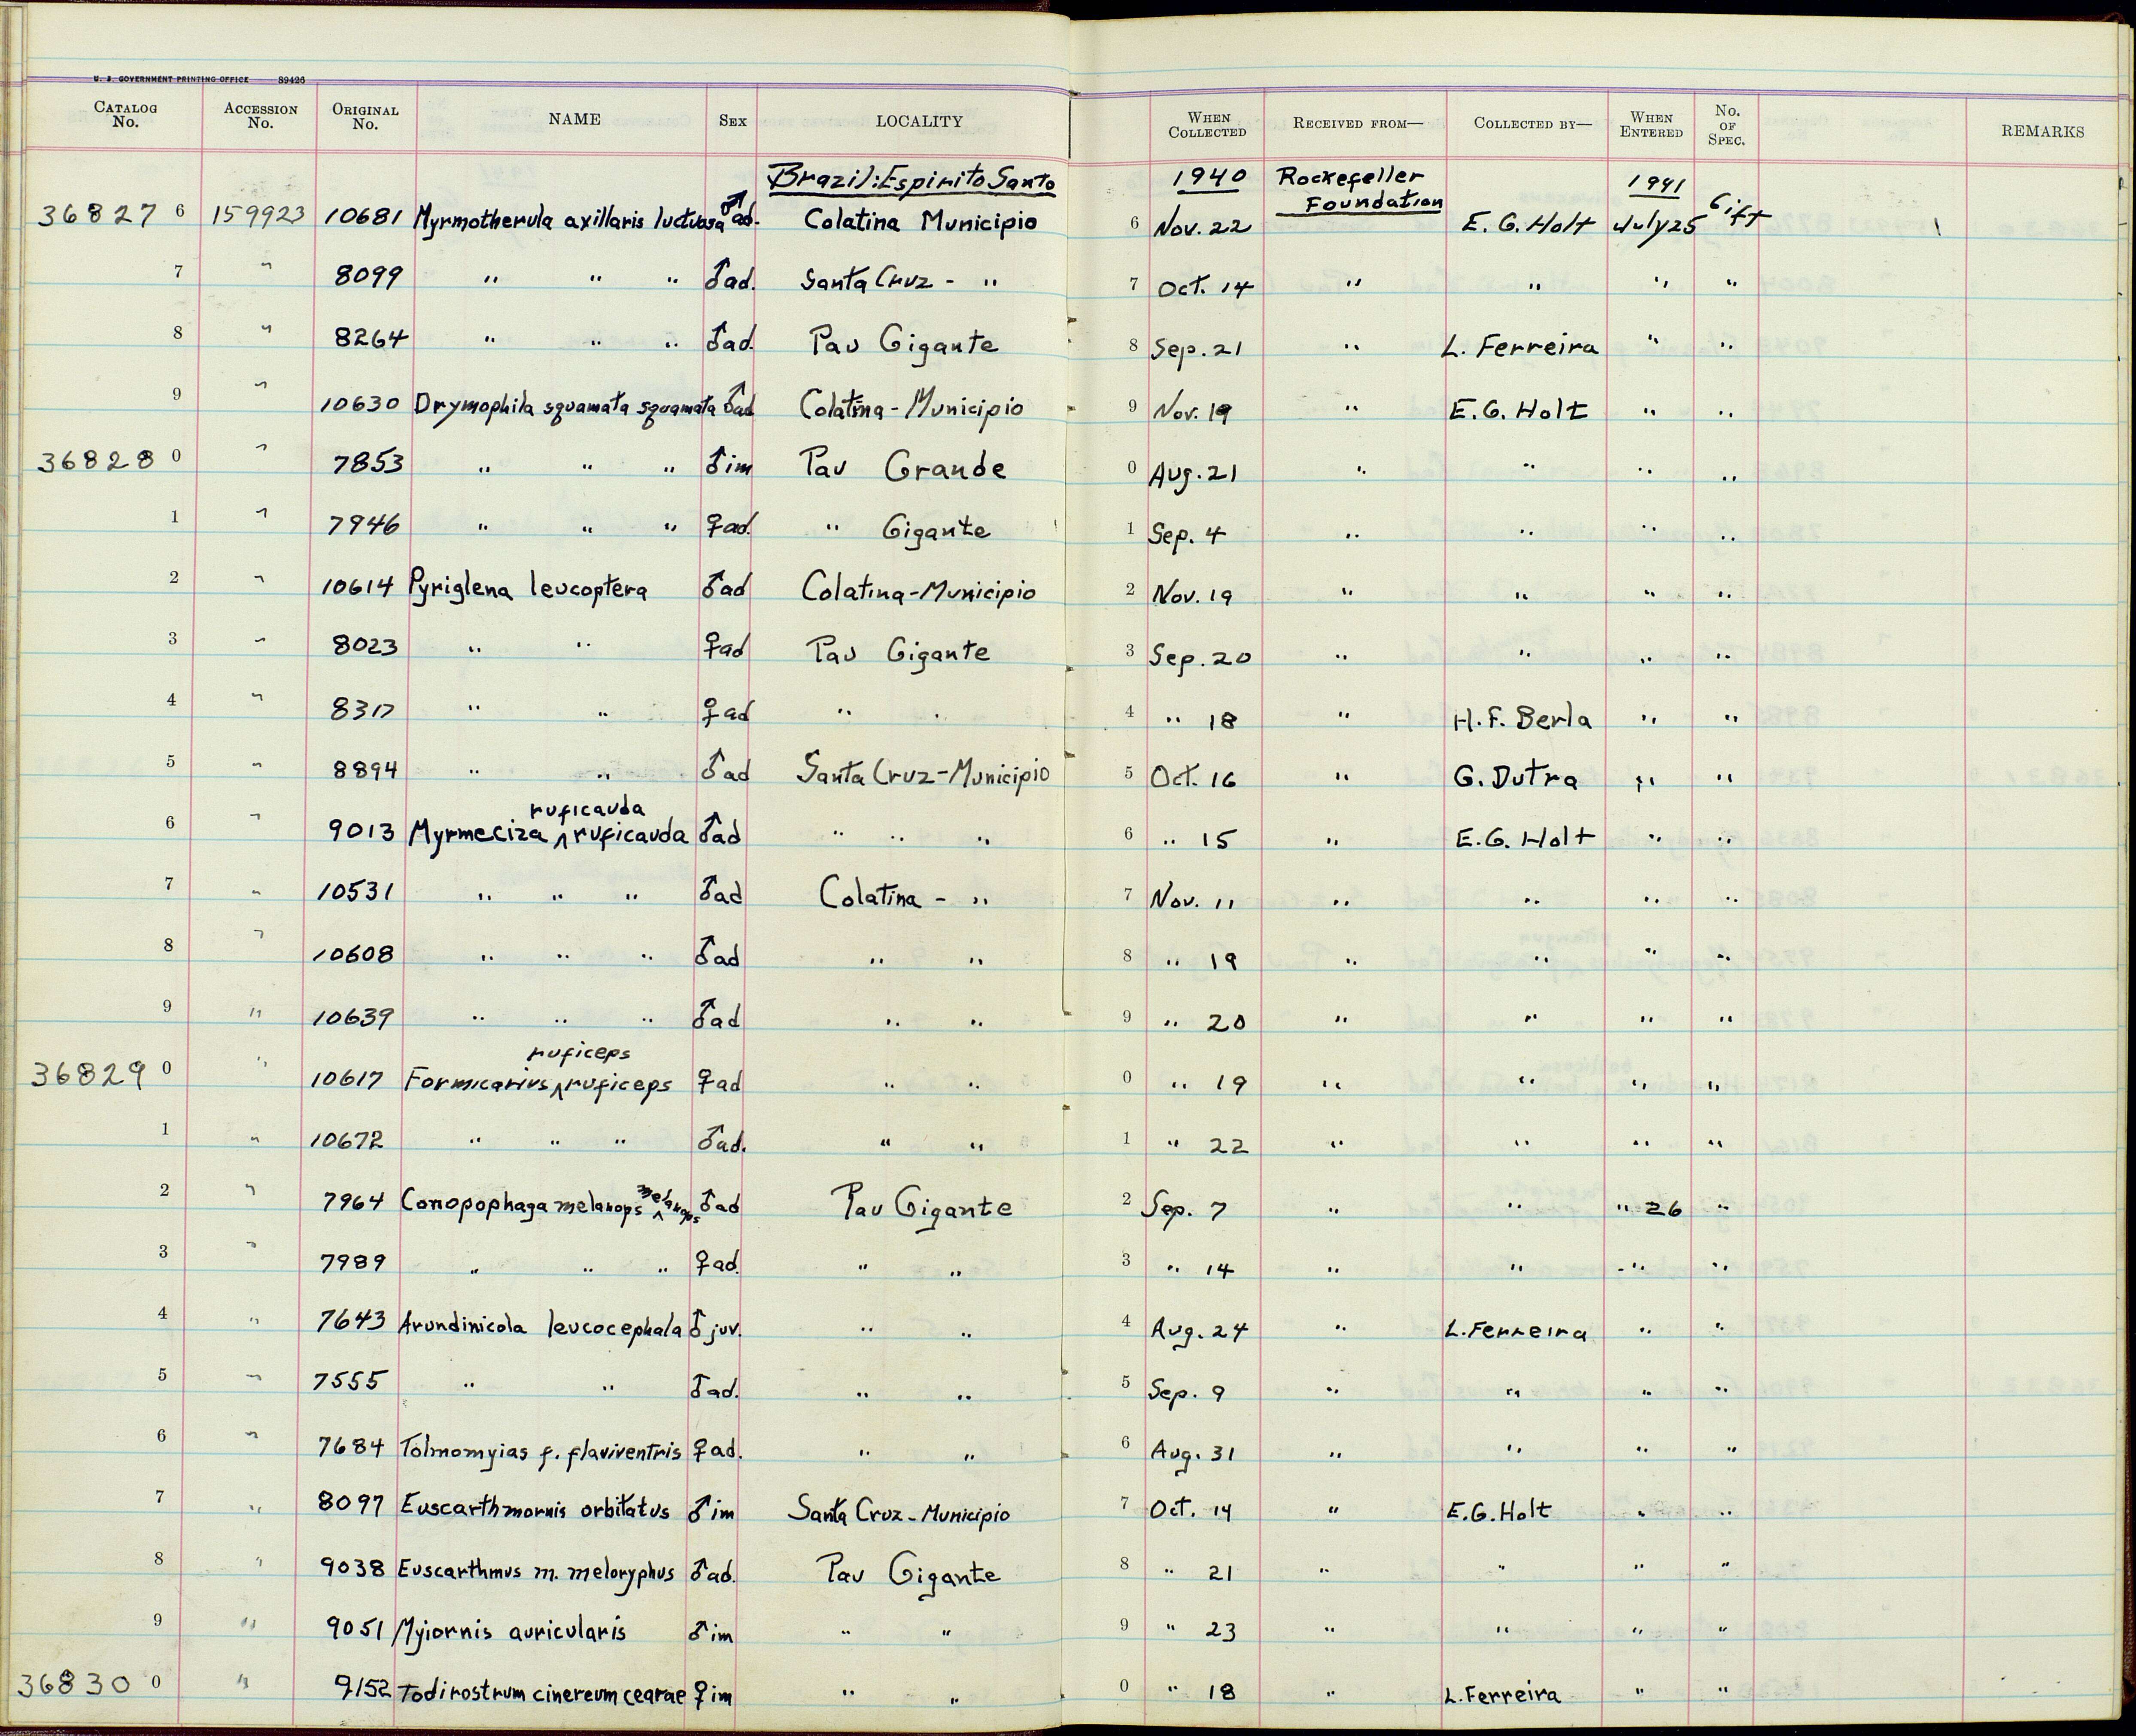 U. S. GOVERNMENT PRINTING OFFICE 89426
CATALOG No. ACCESSION No. ORIGINAL No. NAME SEX LOCALITY WHEN COLLECTED RECEIVED FROM— COLLECTED BY— WHEN ENTERED No. OF SPEC. REMARKS
Brazil: Espirito Santo 1940 Rockefeller Foundation 1941
36827 6 159923 10681 Myrmotherula axillaris luctuosa ♂ad. Colatina Municipio 6 Nov. 22 E. G. Holt July 25 Gift 1
7 " 8099 " " " ♂ad. Santa Cruz - " 7 Oct. 14 " " " "
8 " 8264 " " " ♂ad. Pau Gigante 8 Sep. 21 " L. Ferreira " "
9 " 10630 Drymophila squamata squamata ♂ad Colatina - Municipio 9 Nov. 19 " E. G. Holt " "
36828 0 " 7853 " " " ♂im Pau Grande 0 Aug. 21 " " " "
1 " 7946 " " " ♀ad. " Gigante 1 Sep. 4 " " " "
2 " 10614 Pyriglena leucoptera ♂ad Colatina-Municipio 2 Nov. 19 " " " "
3 " 8023 " " ♀ad Pau Gigante 3 Sep. 20 " " " "
4 " 8317 " " ♀ad " " 4 " 18 " H. F. Berla " "
5 " 8894 " " ♂ad Santa Cruz-Municipio 5 Oct. 16 " G. Dutra " "
6 " 9013 Myrmeciza ^ruficauda ruficauda ♂ad " " " 6 " 15 " E. G. Holt " "
7 " 10531 " " " ♂ad Colatina - " 7 Nov. 11 " " " "
8 " 10608 " " " ♂ad " " 8 " 19 " " " "
9 " 10639 " " " ♂ad " " 9 " 20 " " " "
36829 0 " 10617 Formicarius ^ruficeps ruficeps ♀ad " " 0 " 19 " " " "
1 " 10672 " " " ♂ad. " " 1 " 22 " " " "
2 " 7964 Conopophaga melanops ^melanops ♂ad Pau Gigante 2 Sep. 7 " " " 26 "
3 " 7989 " " " ♀ad. " " 3 " 14 " " " "
4 " 7643 Arundinicola leucocephala ♂juv. " " 4 Aug. 24 " L. Ferreira " "
5 " 7555 " " ♂ad. " " 5 Sep. 9 " " " "
6 " 7684 Tolmomyias f. flaviventris ♀ad. " " 6 Aug. 31 " " " "
7 " 8097 Euscarthmornis orbitatus ♂im Santa Cruz - Municipio 7 Oct. 14 " E. G. Holt " "
8 " 9038 Euscarthmus m. meloryphus ♂ad. Pau Gigante 8 " 21 " " " "
9 " 9051 Myiornis auricularis ♂im " " 9 " 23 " " " "
36830 0 " 9152 Todirostrum cinereum cearae ♀im " " 0 " 18 " L. Ferreira " "